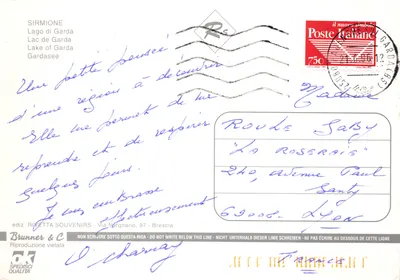 SIRMIONE
Lago di Garda
Lac de Garda
Lake of Garda
Gardasee
il nuovo
Poste Italiane
750
Une petite pensée
d'une région à découvrir
Elle me permet de me
reprendre et de respirer
quelques jours.
Je vous embrasse
affectueusement
O Charnay
Madame
ROULE GABY
"LA ROSERAIE"
240, avenue Paul
Santy
69008. LYON
FRANCE
ROVETTA SOUVENIRS
97 - Brescia
Brunner & C
Riproduzione vietata
NON SCRIVERE SOTTO QUESTA RIGA - DO NOT WRITE BELOW THIS LINE - NICHT UNTERHALB DIESER LINIE SCHREIBEN - NE PAS ÉCRIRE AU DESSOUS DE CETTE LIGNE
QUALITÀ